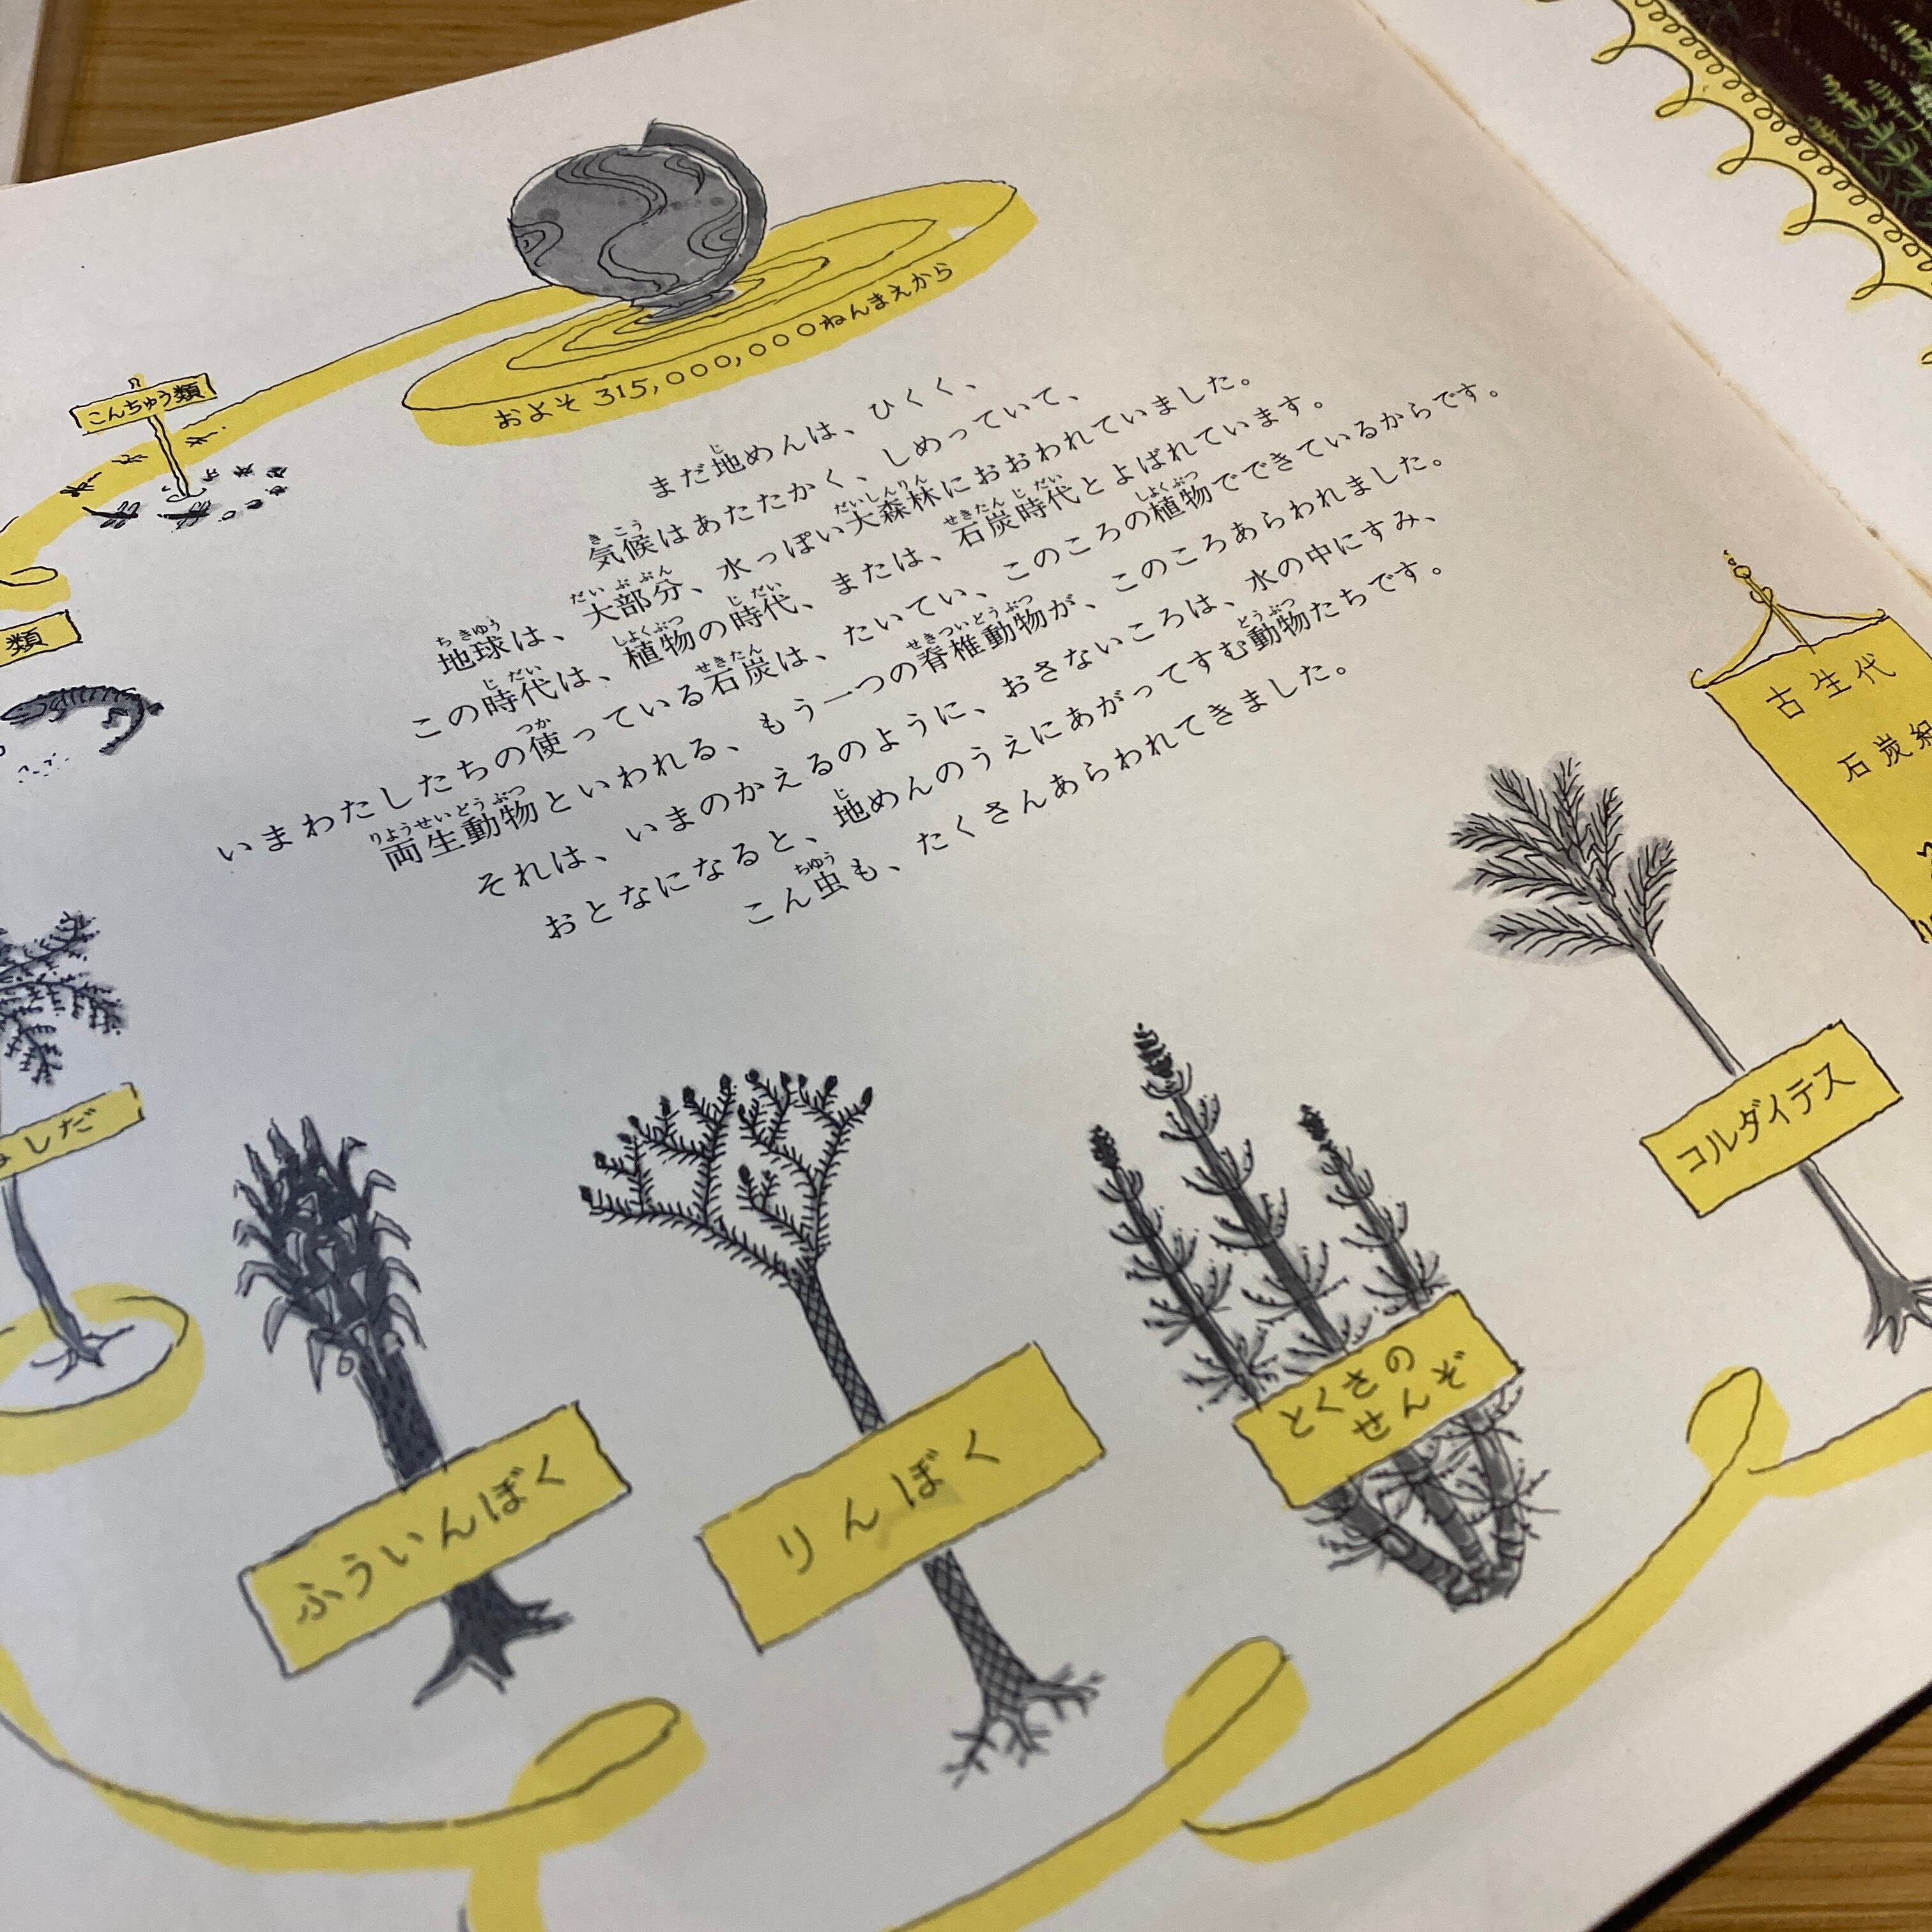 およそ 315,000,000ねんまえから
こんちゅう類
類
まだ地めんは、ひくく、
気候はあたたかく、しめっていて、
大部分、水っぽい大森林におおわれていました。
地球は、
この時代は、植物の時代、または、石炭時代とよばれています。
いまわたしたちの使っている石炭は、たいてい、このころの植物でできているからです。
両生動物といわれる、もう一つの脊椎動物が、このころあらわれました。
それは、いまのかえるのように、おさないころは、水の中にすみ、
おとなになると、地めんのうえにあがってすむ動物たちです。
こん虫も、たくさんあらわれてきました。
古生代
石炭紀
しだ
ふういんぼく
りんぼく
とくさの
せんぞ
コルダイテス